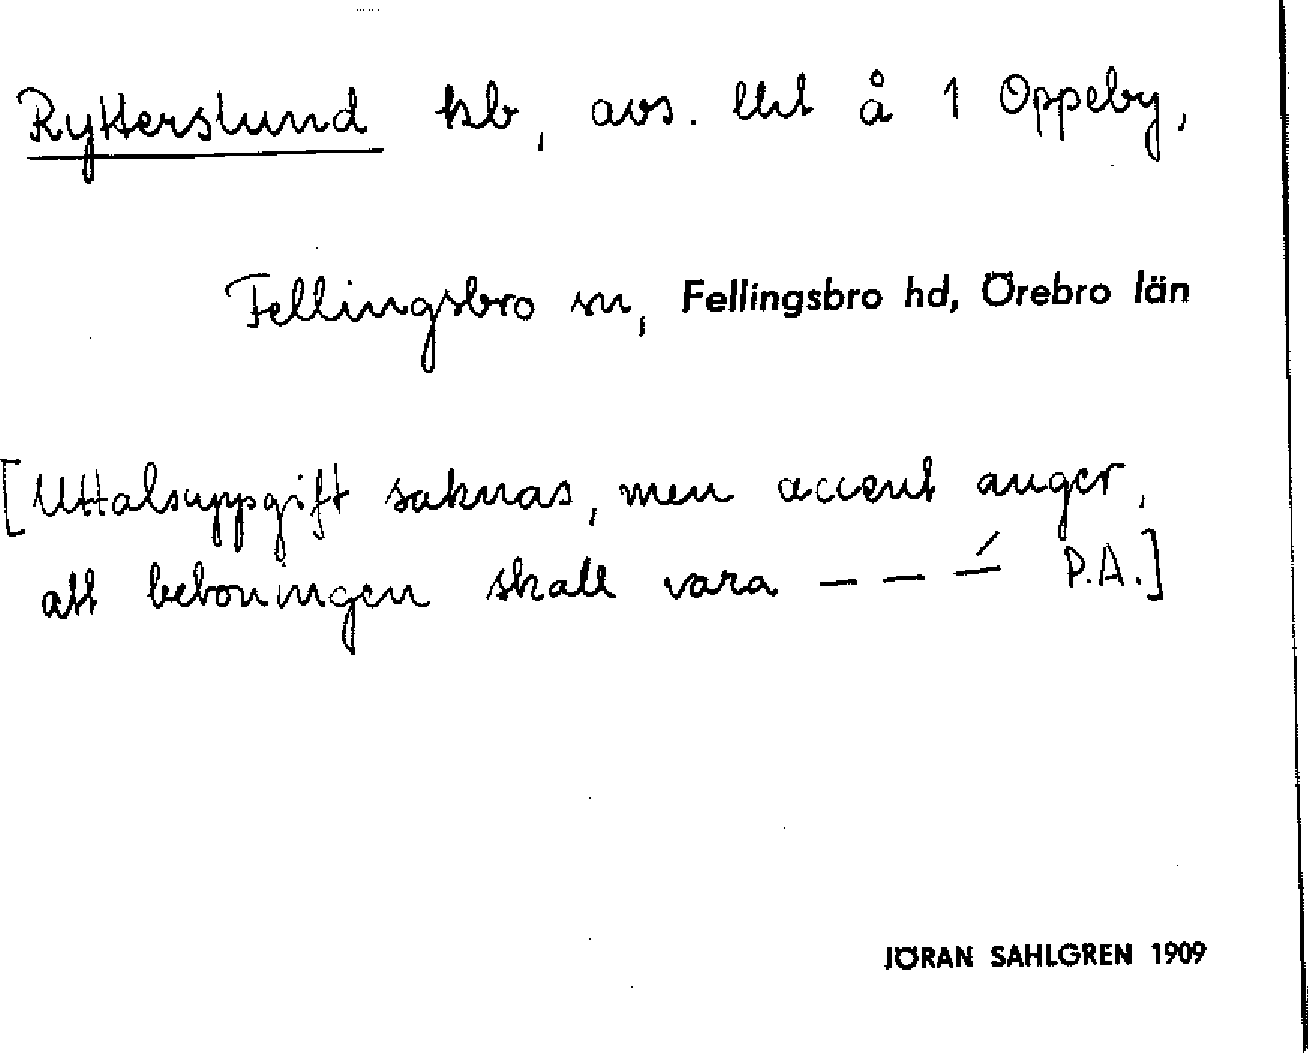 Rytterslund hb, avs. lht å 1 Oppeby,
Fellingsbro sn, Fellingsbro hd, Örebro län
[Uttalsuppgift saknas, men accent anger,
att betoningen skall vara – – –́ P.A.]
JÖRAN SAHLGREN 1909